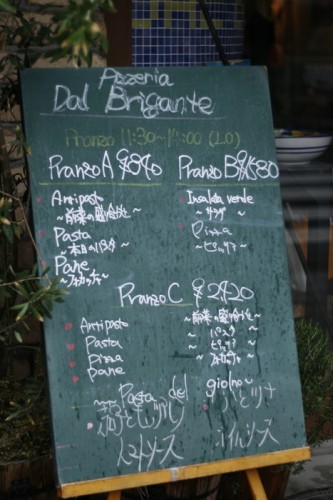 Pizzeria
Dal Brigante
Pranzo 11:30~14:00 (LO)
Pranzo A ¥840
Antipasto
~前菜の盛合せ~
Pasta
~本日のパスタ~
Pane
~フォカッチャ~
Pranzo B
Insalda verde
~サラダ~
Pizza
~ピッツァ~
Pranzo C ¥2420
Antipasto ~前菜の盛合せ~
Pasta ~パスタ~
Pizza ~ピッツァ~
Pane ~フォカッチャ~
~ Pasta del giorno~
トマトソース
オイルソース